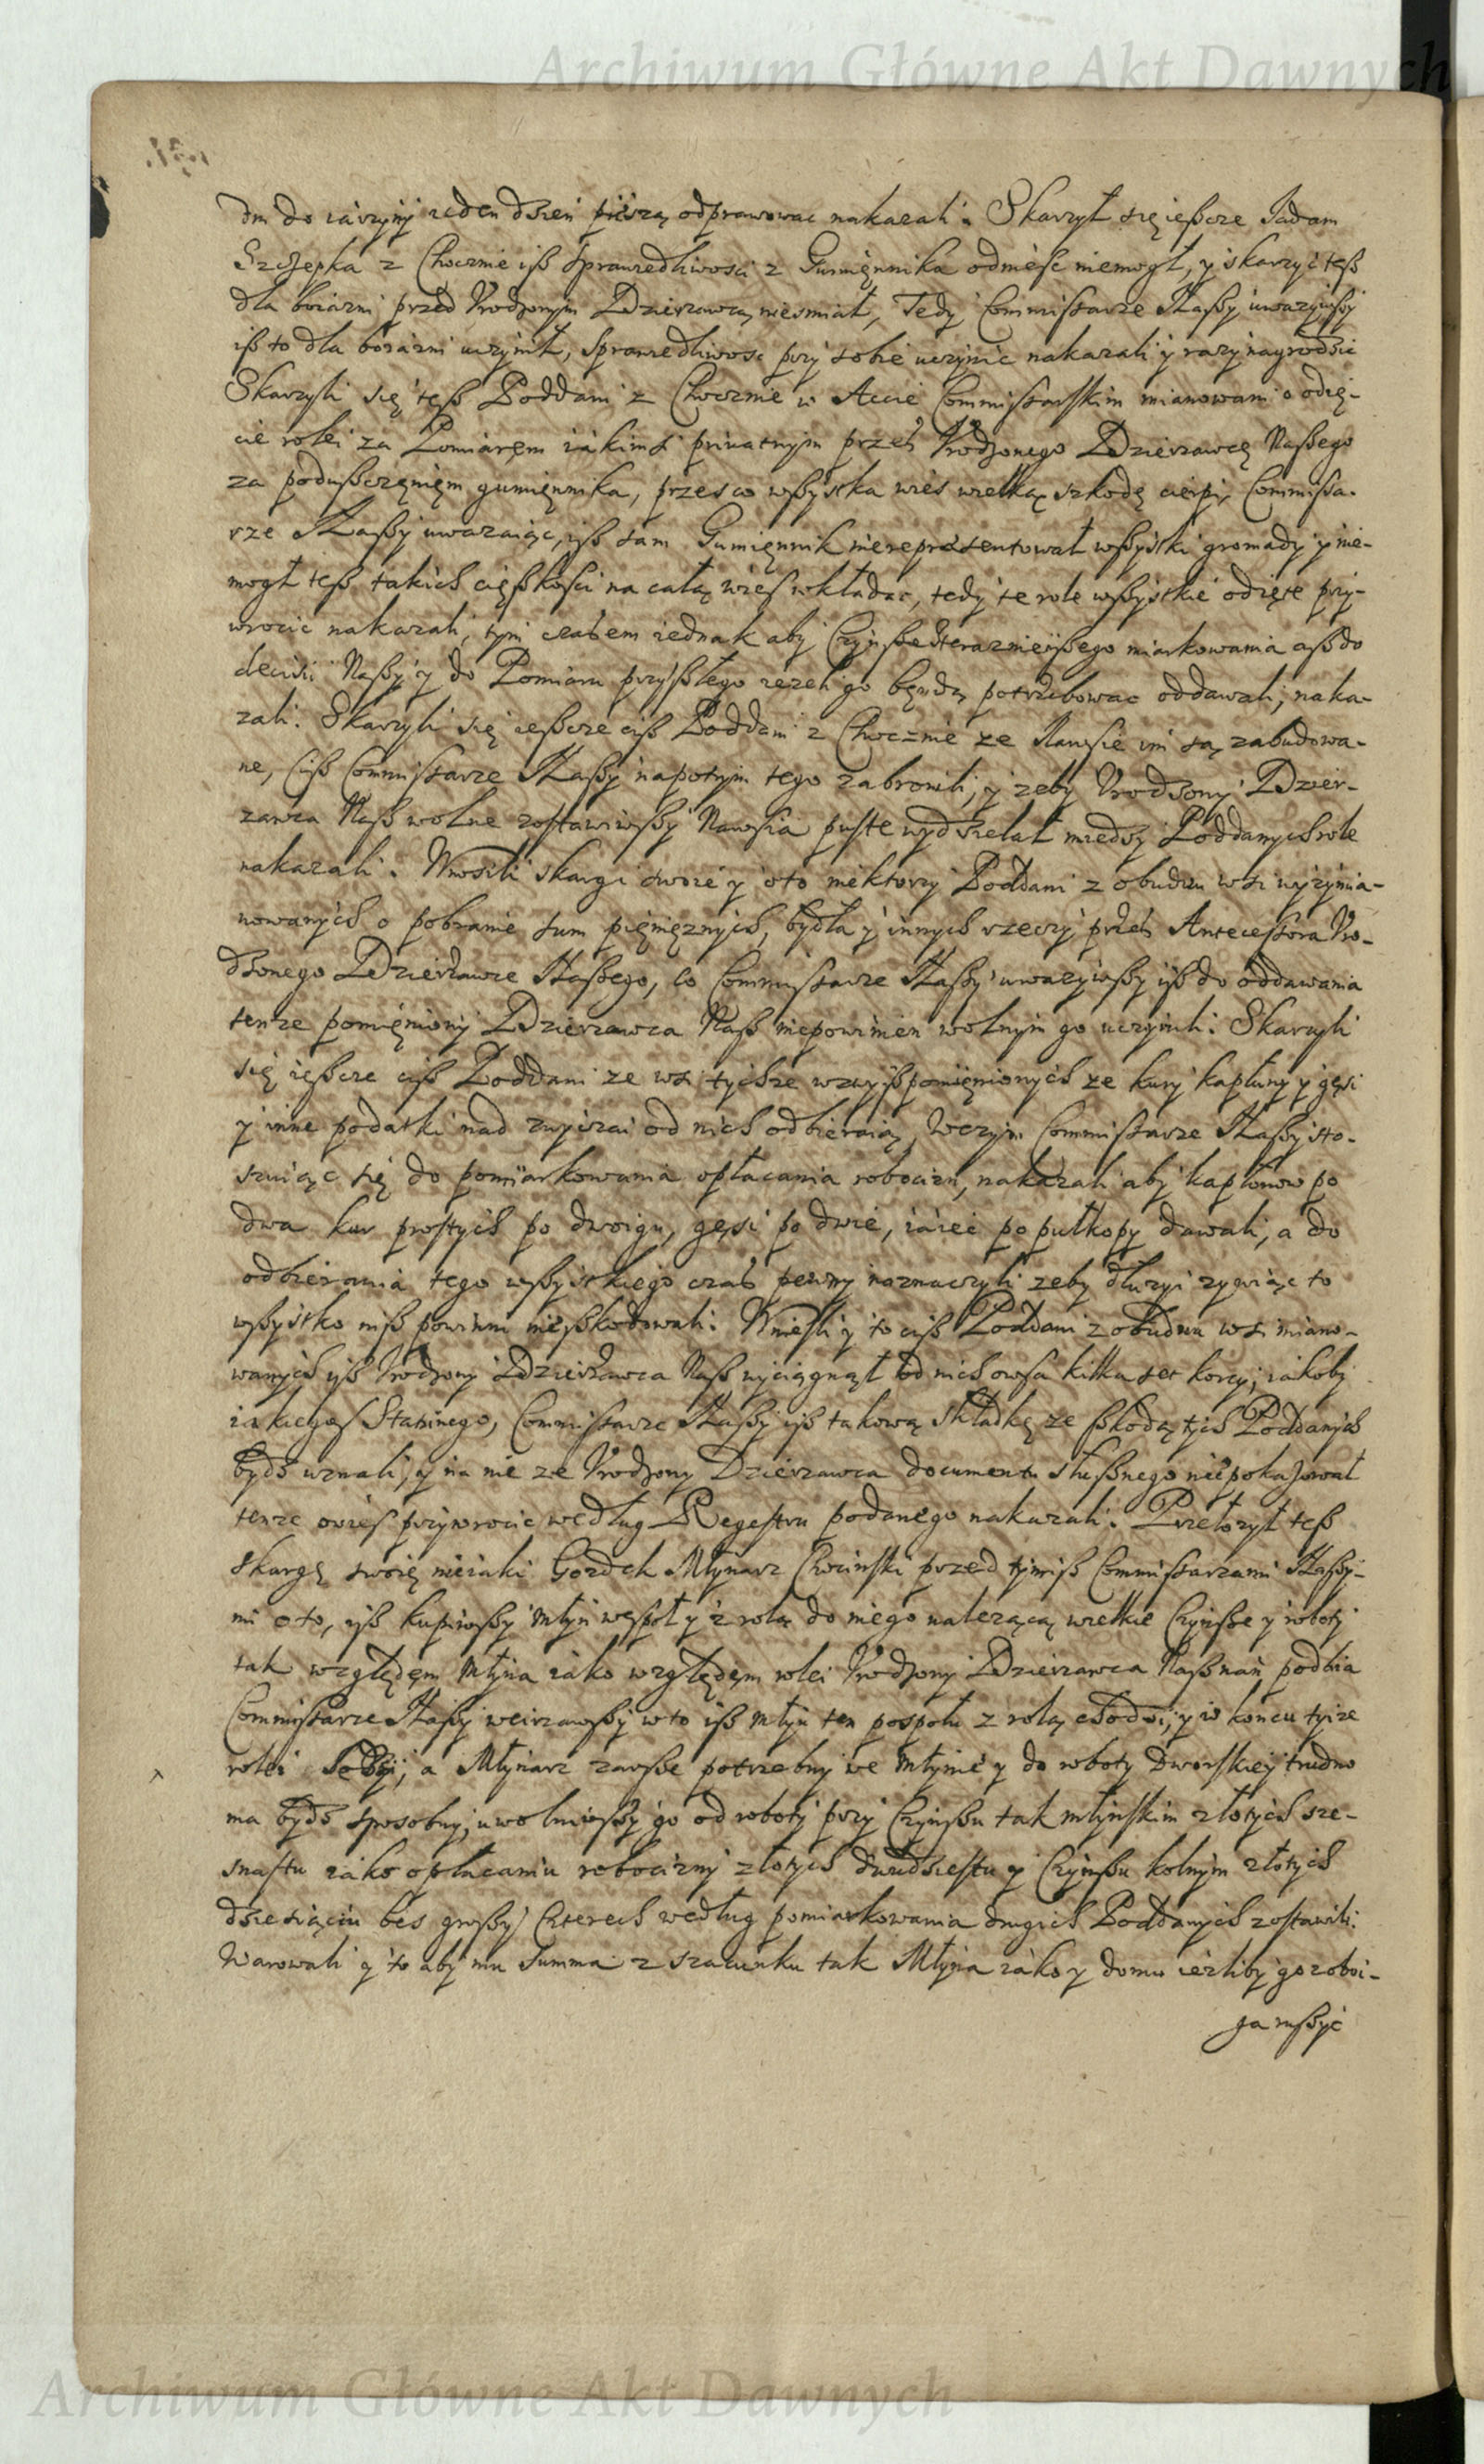 Archiwum Główne Akt Dawnych
dm do iarzyny ieden dzień pieszą odprawowac nakazali. Skarzył się ieszcze Jadam
Szczepka z Chocznie isz sprawiedliwosci z Gumięnnika odnieść niemogł, y skarzyć tesz
dla boiazni przed Urodzonym Dzierzawcą niesmiał, Tedy Commissarze Naszy uwazywszy
isz to dla boiazni uczynił, sprawiedliwosc przy sobie uczynic nakazali y razy nagrodzic
Skarzyli się tesz Poddani z Chocznie w Accie Commissarskim mianowani o odię-
cie rolei za Pomiaręm iakimsi priuatnym przes Urodzonego Dzierzawcę Naszego
za poduszczęnięm gumięnnika, przes co wszystka wies wielką szkodę cierpi, Commissa-
rze Naszy uwazaiąc, isz sam Gumięnnik niereprezentował wszystki gromady y nie-
mogł tesz takich cięszkosci na całą wies wkładac, tedy te role wszystkie odięte przy-
wrocic nakazali, tym czasem iednak aby Czynsze teraznieiszego miarkowania asz do
decisii Naszy y do Pomiaru przyszłego iezeli go będą potrzebowac oddawali, naka-
zali. Skarzyli się ieszcze cisz Poddani z Chocznie ze Nawsie im są zabudowa-
ne, Cisz Commissarze Naszy napotym tego zabronili, y zeby Urodzony Dzier-
zawca Nasz wolne zostawiwszy Nawsia puste wydzielał miedzy Poddanych role
nakazali. Wnosili skargi swoie y oto niektorzy Poddani z obudwu wsi wyzymia-
nowanych o pobranie sum pięnięznych, bydła y innych rzeczy przes Antecessora Uro-
dzonego Dzierzawce Naszego, co Commissarze Naszy uwazywszy isz do oddawania
tenze pomięniony Dzierzawca Nasz niepowinien wolnym go uczynili. Skarzyli
się ieszcze cisz Poddani ze wsi tychze wzwyszpomięnionych ze kury kapłuny y gęsi
y inne podatki nad zwyczai od nich odbieraią, Wczym Commissarze Naszy sto-
suiąc się do pomiarkowania opłacania robocizn, nakazali aby kapłonow po
dwa kur prostych po dwoigu, gęsi po dwie, iaiec po pułkopy dawali, a do
odbierania tego wszystkiego czas pewny naznaczyli zeby dłuzyi zywiąc to
wszystko nisz powinni nieszkodowali. Wnieśli y to cisz Poddani z obudwu wsi miano-
wanych isz Urodzony Dzierzawca Nasz wyciągnął od nich owsa kilka set korcy, iakoby
iakiegos Stacinego, Commissarze Naszy isz takową składkę ze szkodą tych Poddanych
bydz uznali, y na nie ze Urodzony Dzierzawca documentu słusznego niepokazował
tenze owies przywrocic według Regestru podanego nakazali. Przełozył tesz
skargę swoię nieiaki Gozdek Młynarz Chocinski przed tymisz Commissarzami Naszy-
mi o to, isz kupiwszy Młyn wespoł y z rolą do niego nalezącą wielkie Czynsze y roboty
tak względem Młyna iako względem rolei Urodzony Dzierzawca Nasz nań podbia
Commissarze Naszy weirzawszy w to isz Młyn ten pospołu z rolą chodzi, y w koncu tyize
rolei siedzi, a Młynarz zawsze potrzebny we Młynie y do roboty Dworskiey trudno
ma bydz sposobny, uwolniwszy go od roboty przy Czynszu tak młynskim złotych sze-
snastu iako opłacaniu robocizny złotych dwudziestu y Czynszu rolnym złotych
dziesiąciu bes groszy czterech według pomiarkowania drugich Poddanych zostawili.
Warowali y to aby mu summa z szacunku tak Młyna iako y domu iezliby go zoboi-
ga ruszyć
Archiwum Główne Akt Dawnych